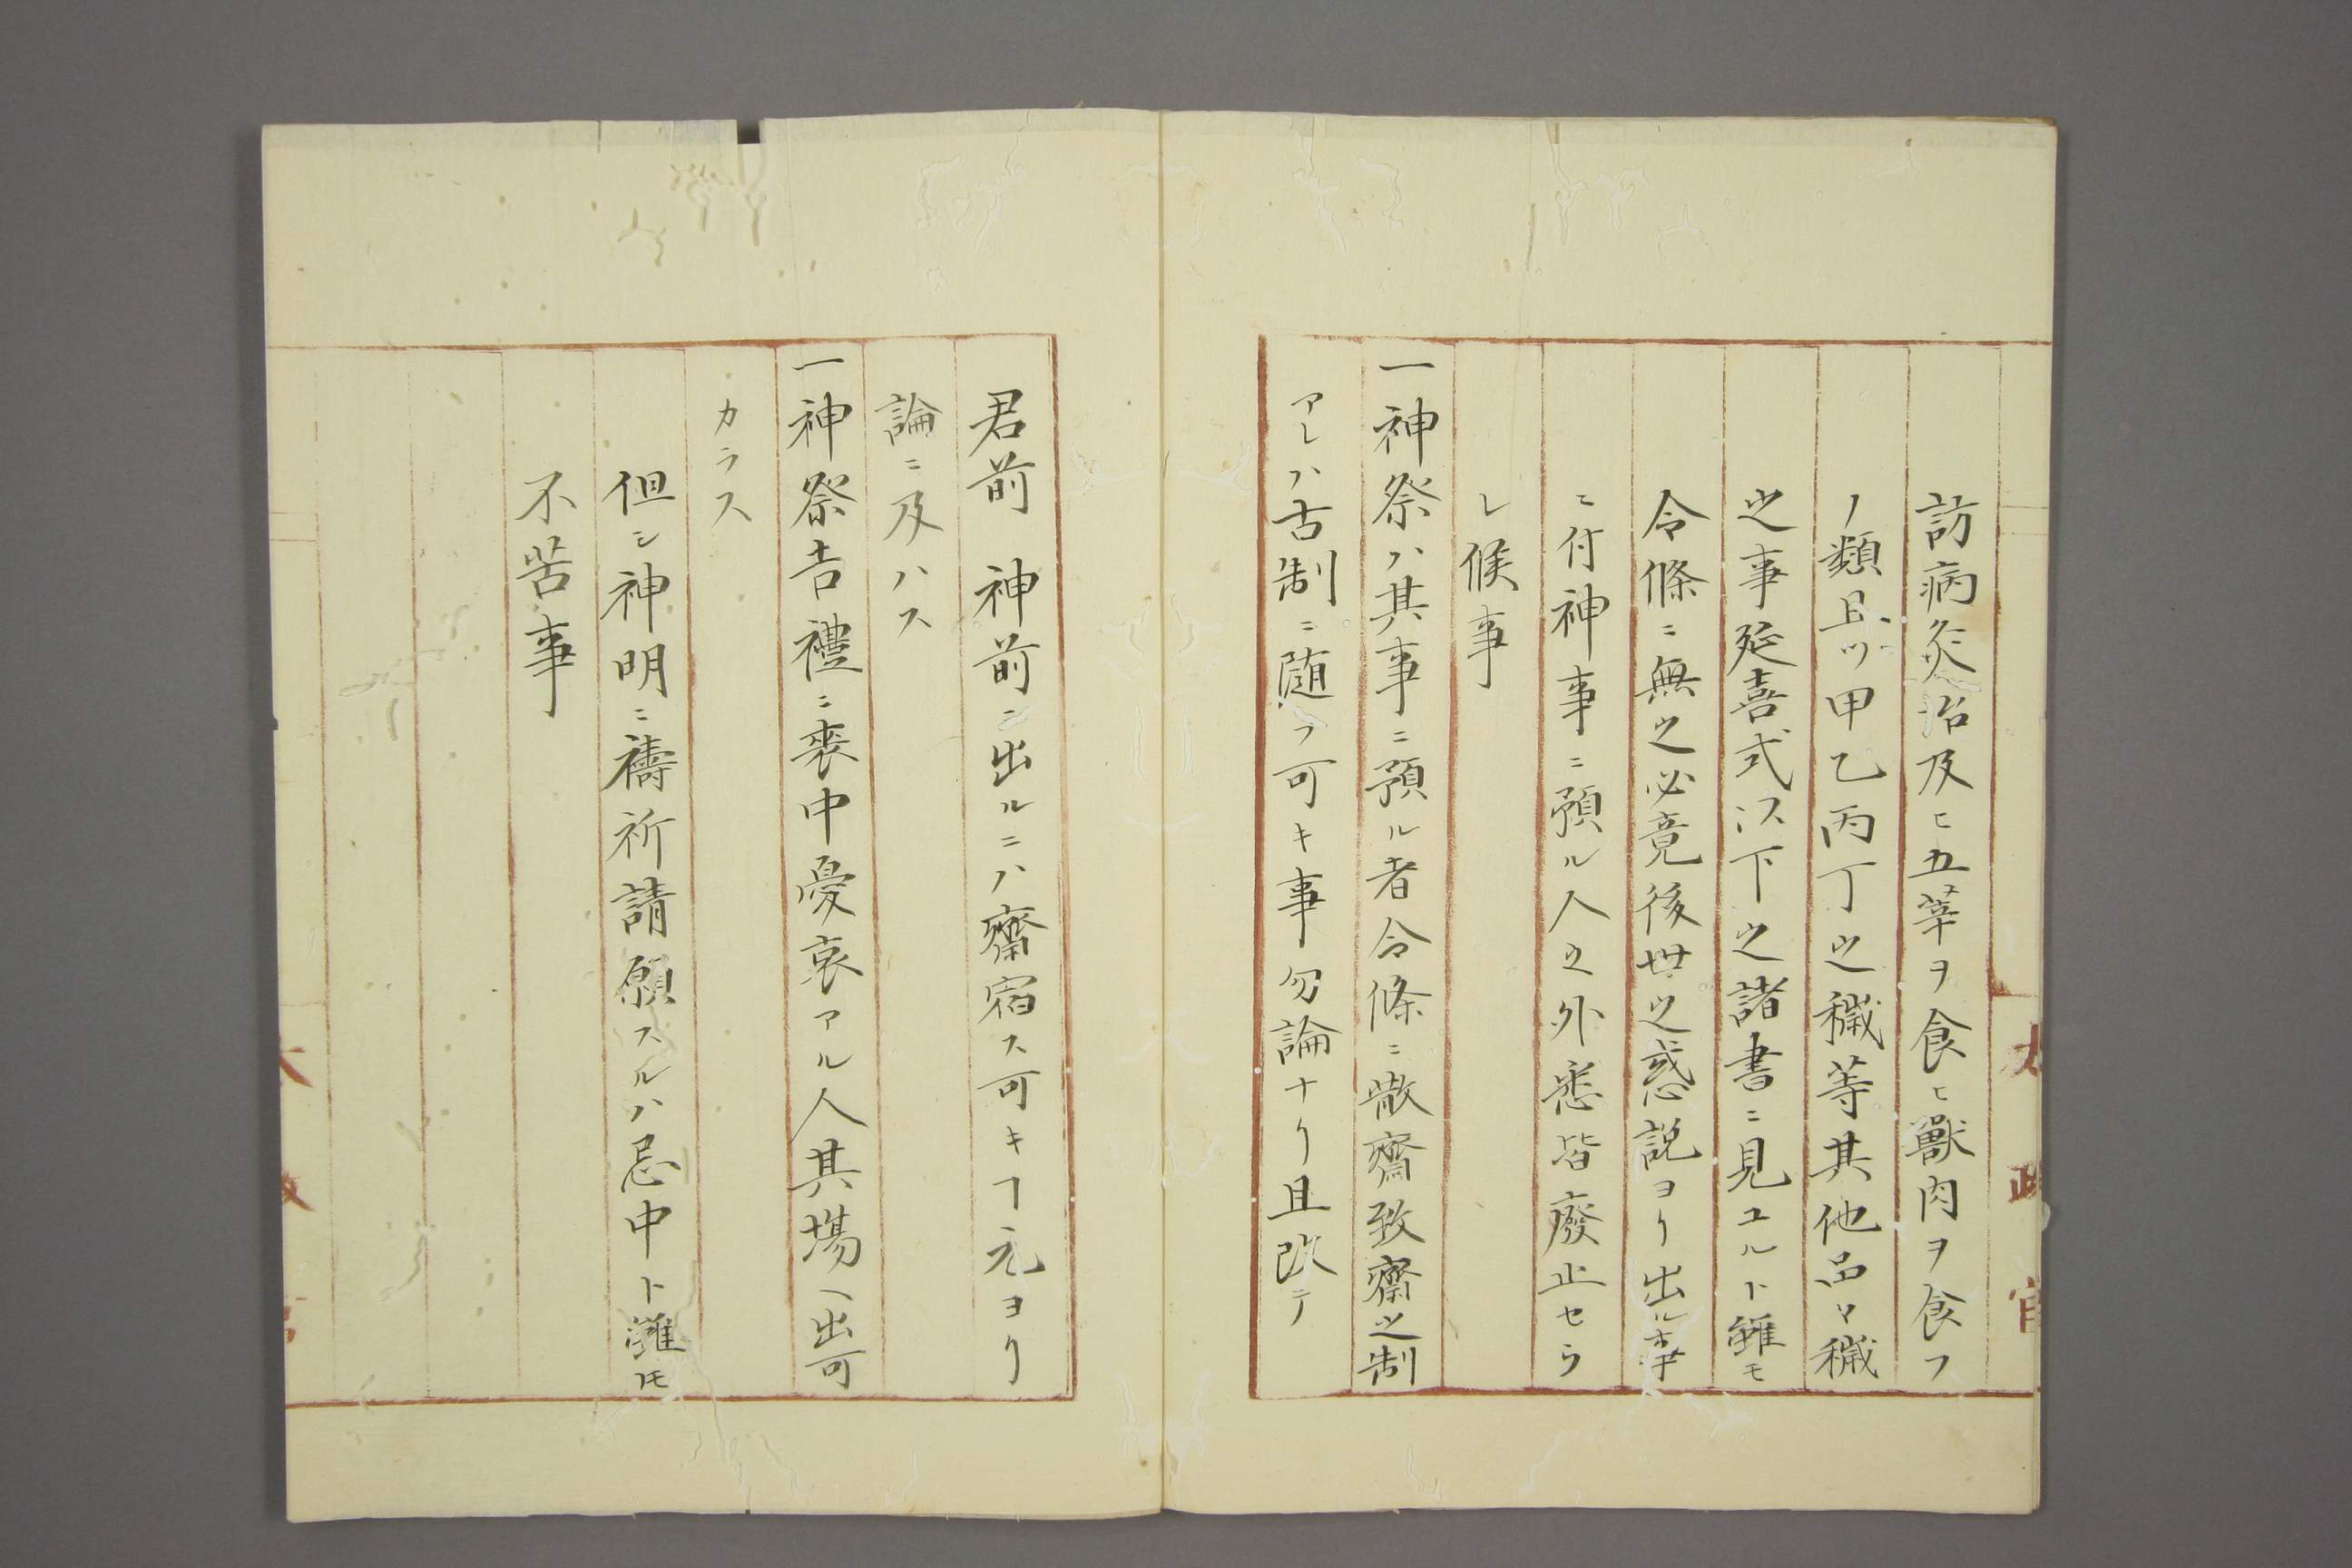 訪病灸治及ヒ五葷ヲ食ヒ獸肉ヲ食フ
ノ類且ツ甲乙丙丁之穢等其他品々穢
之事延喜式以下之諸書ニ見ユルト雖モ
令條ニ無之必竟後世之惑説ヨリ出ル事
ニ付神事ニ預ル人之外悉皆廢止セラ
レ候事
一神祭ハ其事ニ預ル者令條ニ散齋致齋之制
アレハ古制ニ随フ可キ事勿論ナリ且改テ
君前　神前ニ出ルニハ齋宿ス可キヿ元ヨリ
論ニ及ハス
一神祭吉禮ニ喪中憂哀アル人其場ヘ出可
カラス
但シ神明ニ禱祈請願スルハ忌中ト雖𪜈
不苦事
太政官